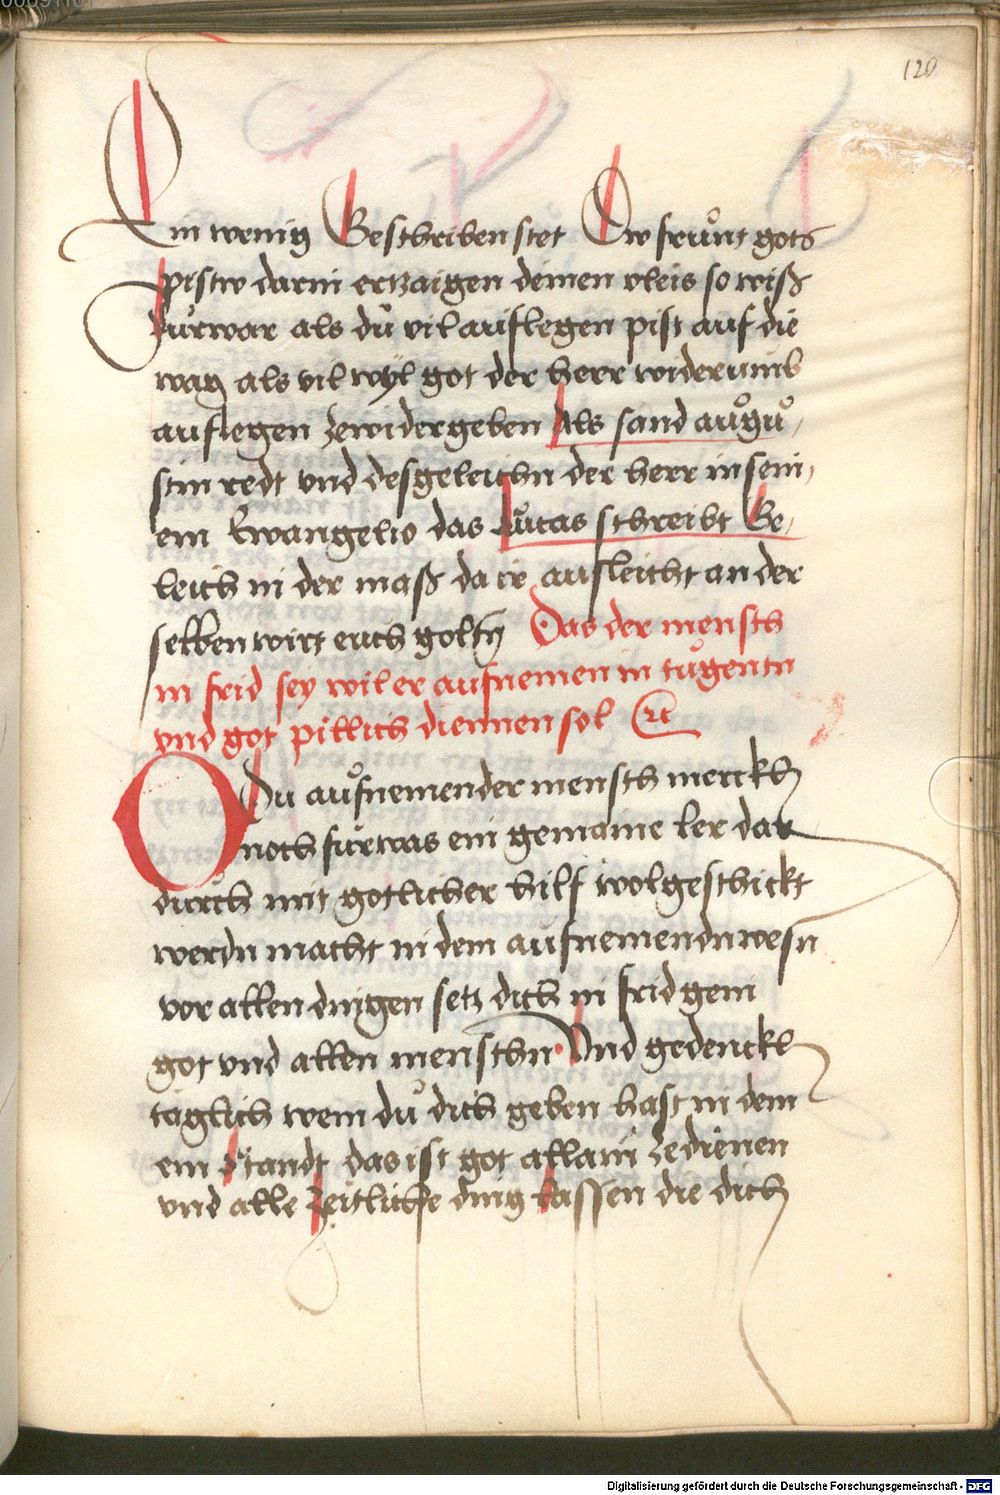 120
Ein wenig Geschriben stet Dw frůnt gots
pistw darin ertzaigen deinen vleis so wiß
fůrwar als dů vil auflegen pist auf die
wag als vil wyl got der herr widerumb
auflegen zewidergeben Als sand aůgů
stin redt vnd desgeleichn der herr in sein
em Ewangelio das Lůcas schreibt Ge
leich in der maß da ir aufleicht an der
selben wirt euch goltn Das der mensch
in frid sey wil er aufnemen in tůgentn
vnd got pillich diennen sol Etc
O Du aůfnemender mensch merckh
noch fůrwas ein gemaine ler dar
durch mit gotlicher hilf wolgeschickt
werdn macht in dem aufnemendn wesn
vor allen dingen setz dich in frid gein
got vnd allen menschn Vnd gedenckh
täglich wem dů dich geben hast in dem
ein standt das ist got allain zedienen
vnd alle zeitliche ding lassen die dich
Digitalisierung gefördert durch die Deutsche Forschungsgemeinschaft - DFG